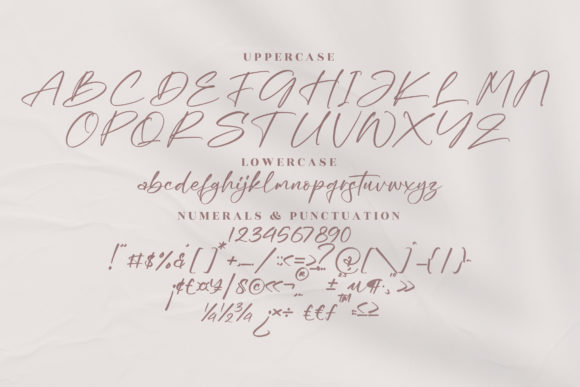 UPPERCASE
ABCDEFGHIJKLMN
OPQRSTUVWXYZ
LOWERCASE
abcdefghijklmnopqrstuvwxyz
NUMERALS & PUNCTUATION
1234567890
!"#$%&'[]*+,-./:;<=>?@[\]_{|}~
¡¢£¤¥§©«¬®¯°±µ¶·¸»
¼½¾¿×÷